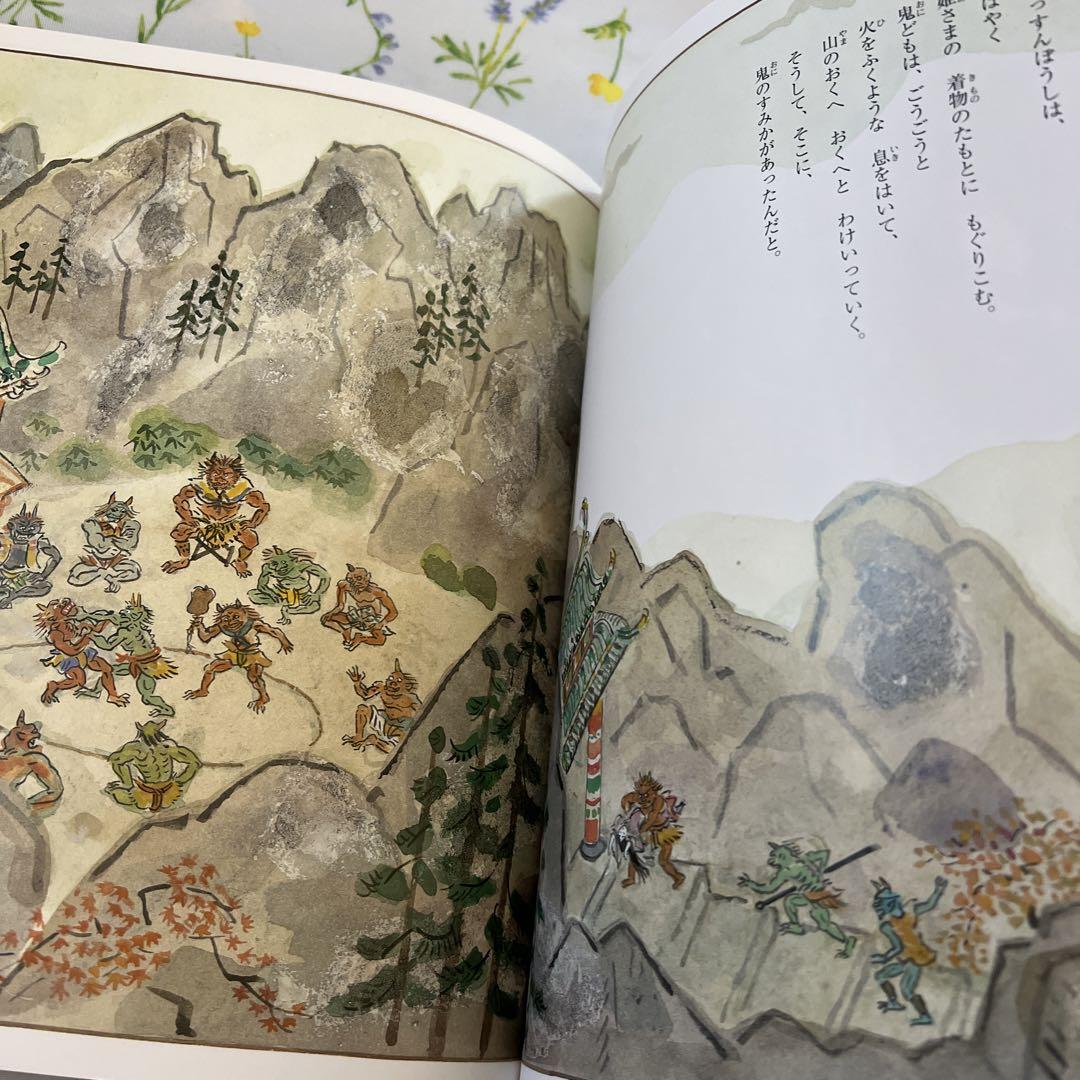 っすんぼうしは、
はやく
姫さまの 着物のたもとに もぐりこむ。
鬼どもは、ごうごうと
火をふくような 息をはいて、
山のおくへ おくへと わけいっていく。
そうして、そこに、
鬼のすみかがあったんだと。